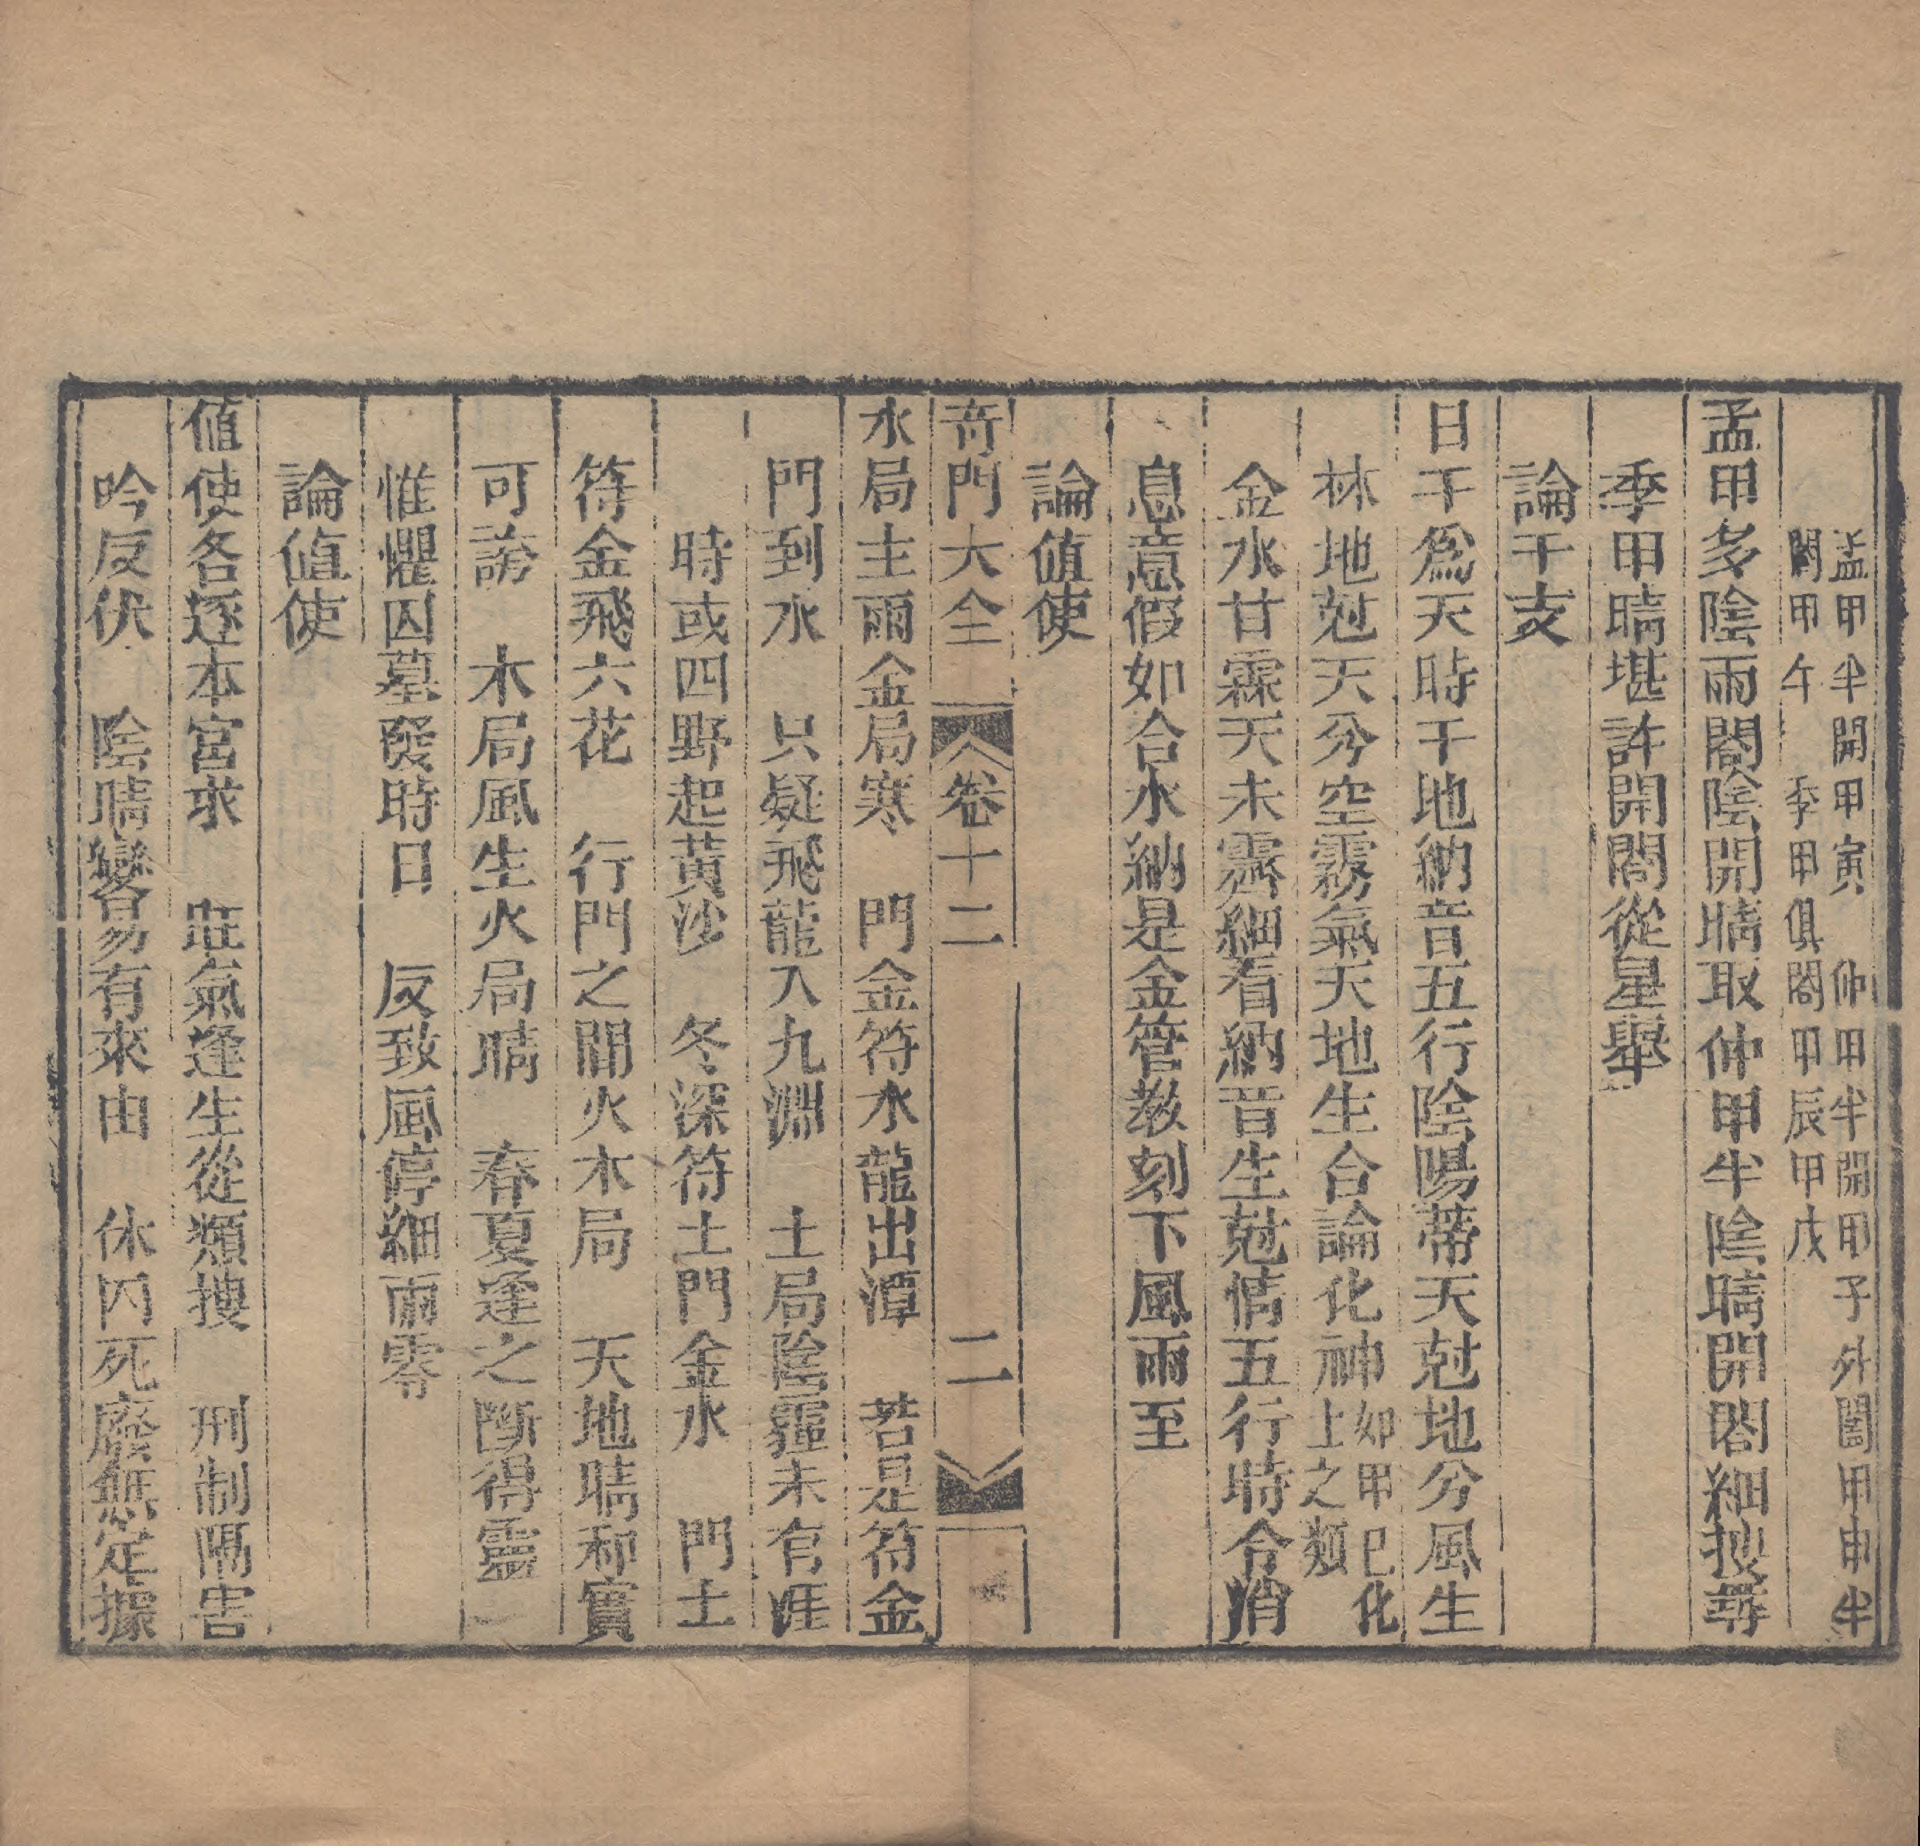 孟甲半開甲寅　仲甲半開甲子外闔甲申半
闔甲午　季甲俱闔甲辰甲戌
孟甲多陰雨闔陰開晴取仲甲半陰晴開闔細搜尋
季甲晴堪許開闔從星舉
論干支
日干為天時干地納音五行陰陽蒂天尅地分風生
林地尅天分空霧氣天地生合論化神如甲巳化
上之類
金水甘霖天未霽細看納音生尅情五行時令消
息意假如合水納是金管教刻下風雨至
論值使
奇門大全　卷十二　二
水局主雨金局寒　門金符水龍出潭　若是符金
門到水　只疑飛龍入九淵　土局陰霾未有涯
時或四野起黃沙　冬深符土門金水　門土
符金飛六花　行門之間火木局　天地晴和實
可誇　木局風生火局晴　春夏逢之斷得靈
惟懼囚墓發時日　反致風停細雨零
論值使
值使各逐本宮求　旺氣逢生從類搜　刑制隔害
吟反伏　陰晴變易有來由　休囚死廢無定據